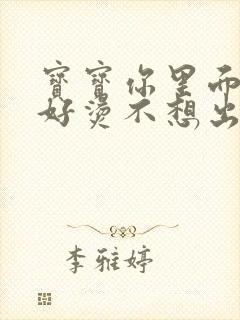 寶寶你里面
好燙不想出
李雅婷